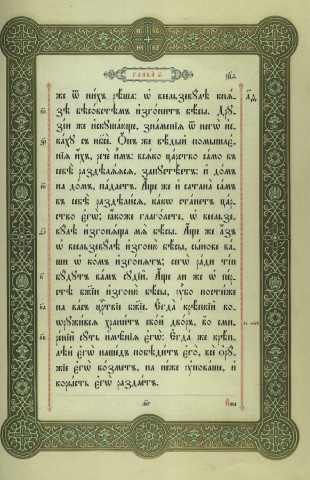 ГЛАВА
же ѿ ни́хъ рѣ́ша: ѡ҆ веельзевꙋ́лѣ кнѧ́-
зѣ бѣсо́встѣмъ и҆зго́нитъ бѣ́сы. Дрꙋ-
зі́и же и҆скꙋша́юще, зна́менїѧ ѿ негѡ̀ и҆-
ска́хꙋ съ нб҃сѐ. Ѻ҆́нъ же вѣ́дый помышлє́-
нїѧ и҆́хъ, речѐ и҆̀мъ: всѧ́ко ца́рство само̀ въ
себѣ̀ раздѣлѧ́ѧсѧ, запꙋстѣ́етъ: и҆ до́мъ
на до́мъ, па́даетъ. А҆́ще же и҆ сатана̀ са́мъ
въ себѣ̀ раздѣли́сѧ, ка́кѡ ста́нетъ ца́р-
ство є҆гѡ̀: ꙗ҆́коже глаго́лете, ѡ҆ веельзе-
вꙋ́лѣ и҆згонѧ́ща мѧ̀ бѣ́сы. А҆́ще же а҆́зъ
ѡ҆ веельзевꙋ́лѣ и҆згоню̀ бѣ́сы, сы́нове ва́-
ши ѡ҆ ко́мъ и҆зго́нѧтъ; сегѡ̀ ра́ди ті́и
бꙋ́дꙋтъ ва́мъ сꙋдїи̑. А҆́ще ли же ѡ҆ пе́р-
стѣ бж҃їи и҆згоню̀ бѣ́сы, ᲂу҆̀бо пости́же
на ва́съ црⷭ҇твїе бж҃їе. Є҆гда̀ крѣ́пкїй во-
ѡрꙋжи́всѧ храни́тъ сво́й дво́ръ, во сми-
ре́нїи сꙋ́ть и҆мѣ̑нїѧ є҆гѡ̀: Є҆гда́ же крѣ́п-
лѣй є҆гѡ̀ наше́дъ побѣди́тъ є҆го̀, всѐ ѻ҆рꙋ́-
жїе є҆гѡ̀ во́зметъ, на не́же ᲂу҆пова́ше, и҆
коры́сть є҆гѡ̀ раздае́тъ.